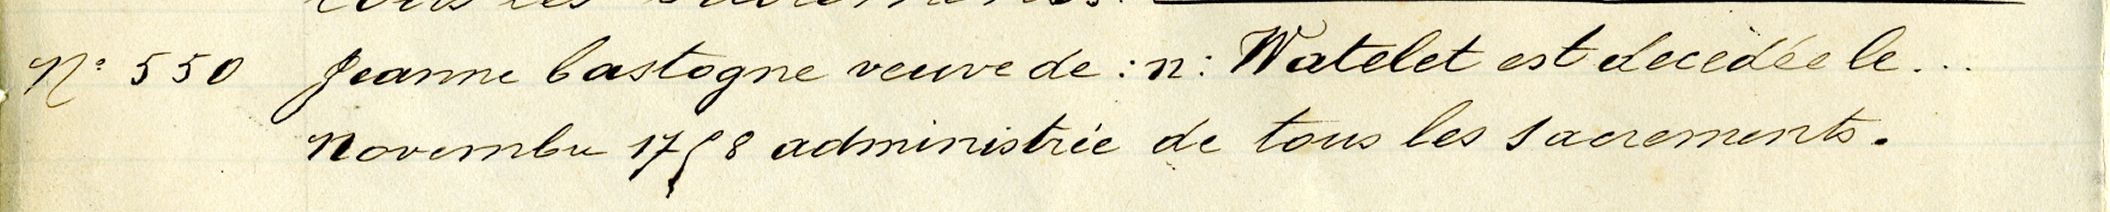 tous les sacrements.
N° 550 Jeanne bastogne veuve de : n : Watelet est decédée le...
Novembre 1758 administrée de tous les sacrements.